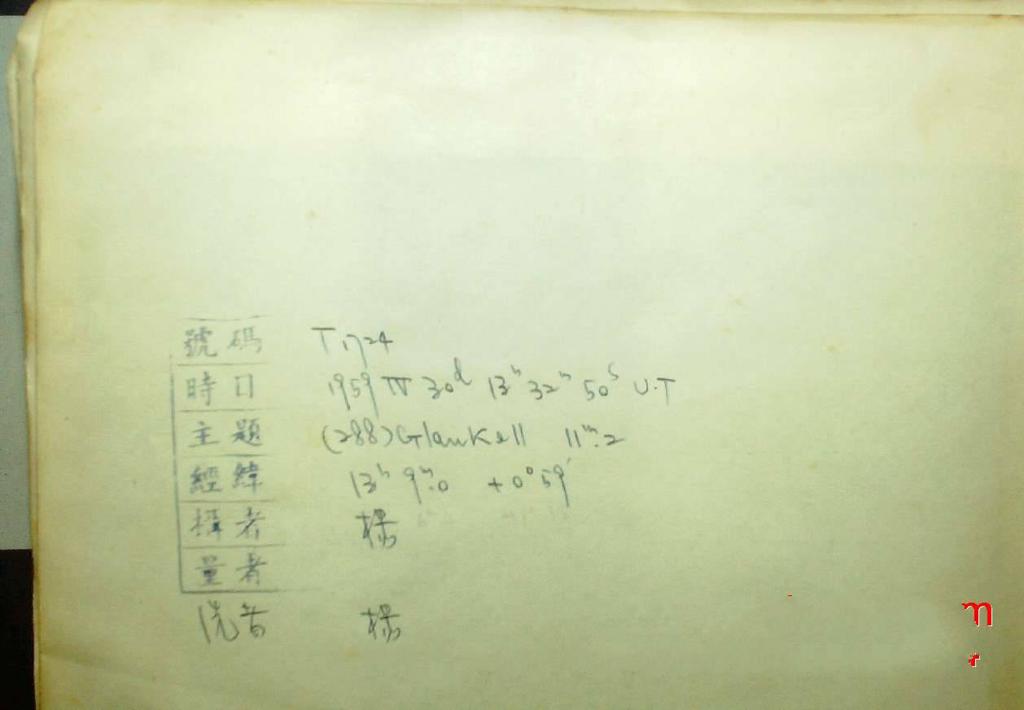 號碼 T1724
時日 1959 IV 30d 13h 32m 50s U.T
主題 (288)Glaukell 11m.2
經緯 13h 9m.0 +0°59'
攝者 楊
量者
洗者 楊